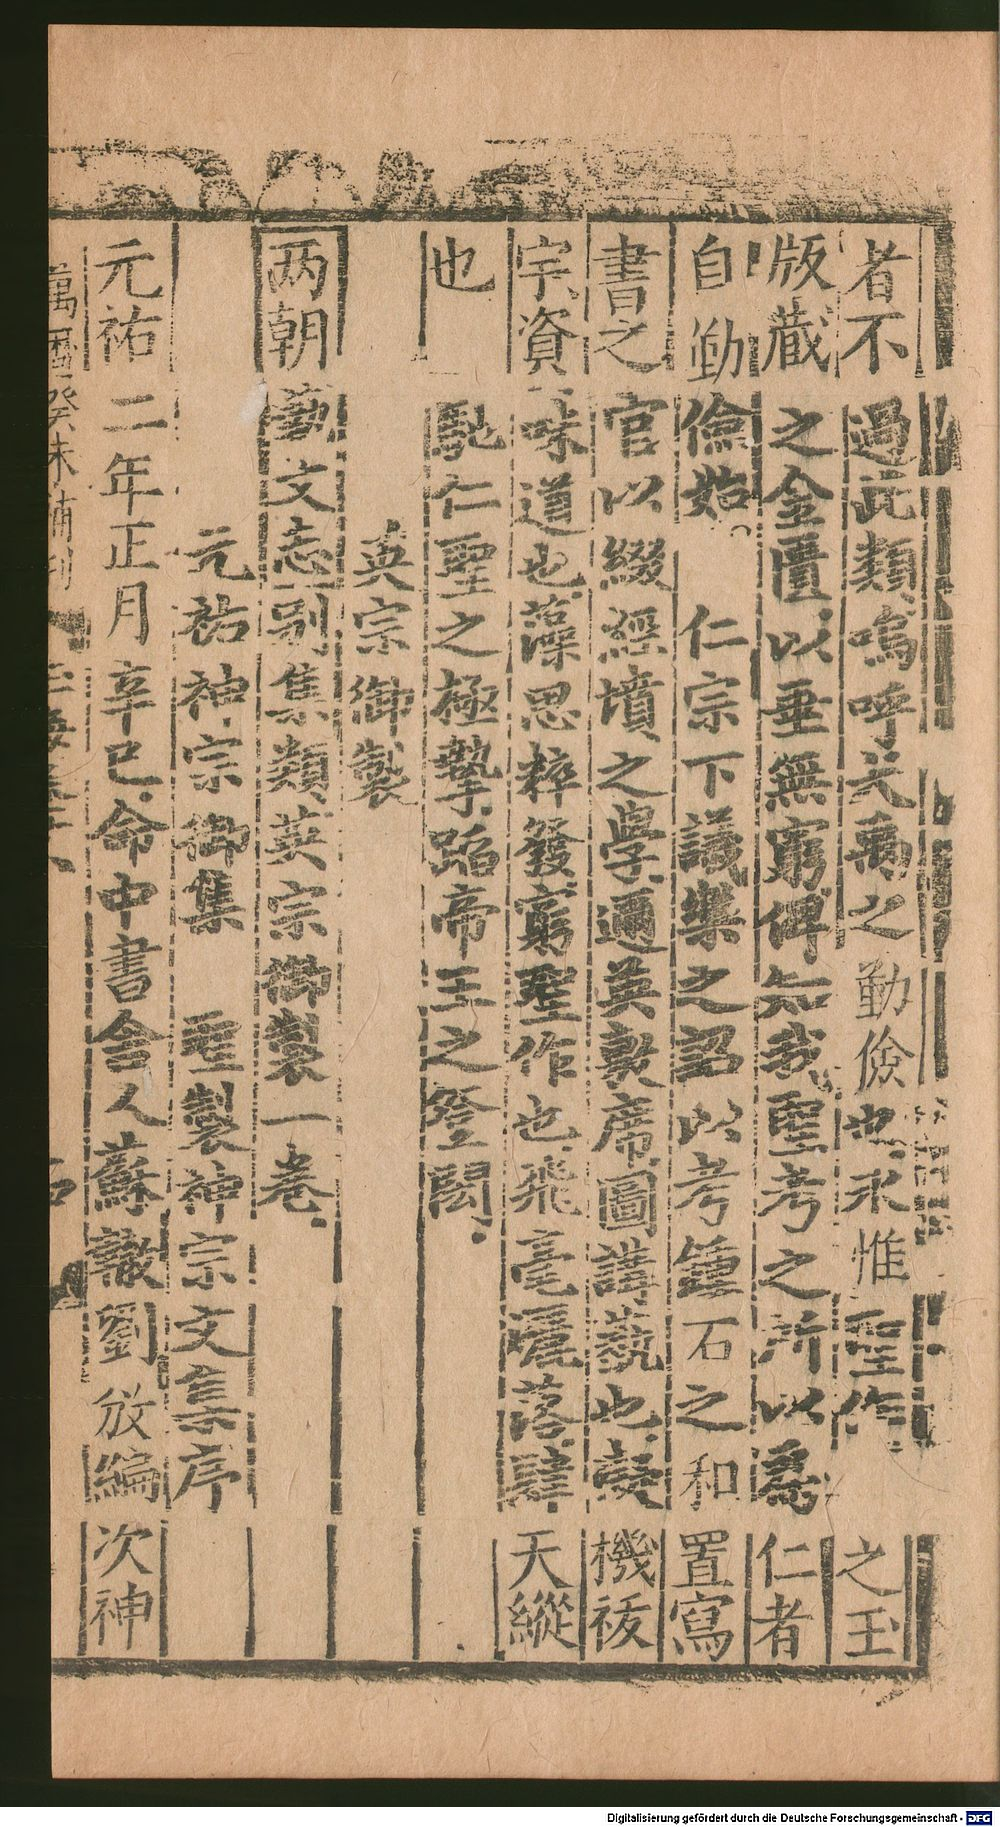 者不過此類嗚呼大禹之勤儉也永惟聖作之玉
版藏之金匱以垂無窮俾知我聖考之所以為仁者
自勤儉始　仁宗下議樂之詔以考鍾石之和置寫
書之官以綴經墳之學邇英敦席圖講藝也凝機祓
宗資味道也藻思粹發窮聖作也飛毫灑落肆天縱
也馳仁聖之極摯蹈帝王之登閎
英宗御製
两朝藝文志别集類英宗御製一卷
元祐神宗御集　聖製神宗文集序
元祐二年正月辛巳命中書舍人蘇轍劉攽編次神
萬曆癸未補刊
Digitalisierung gefördert durch die Deutsche Forschungsgemeinschaft - DFG